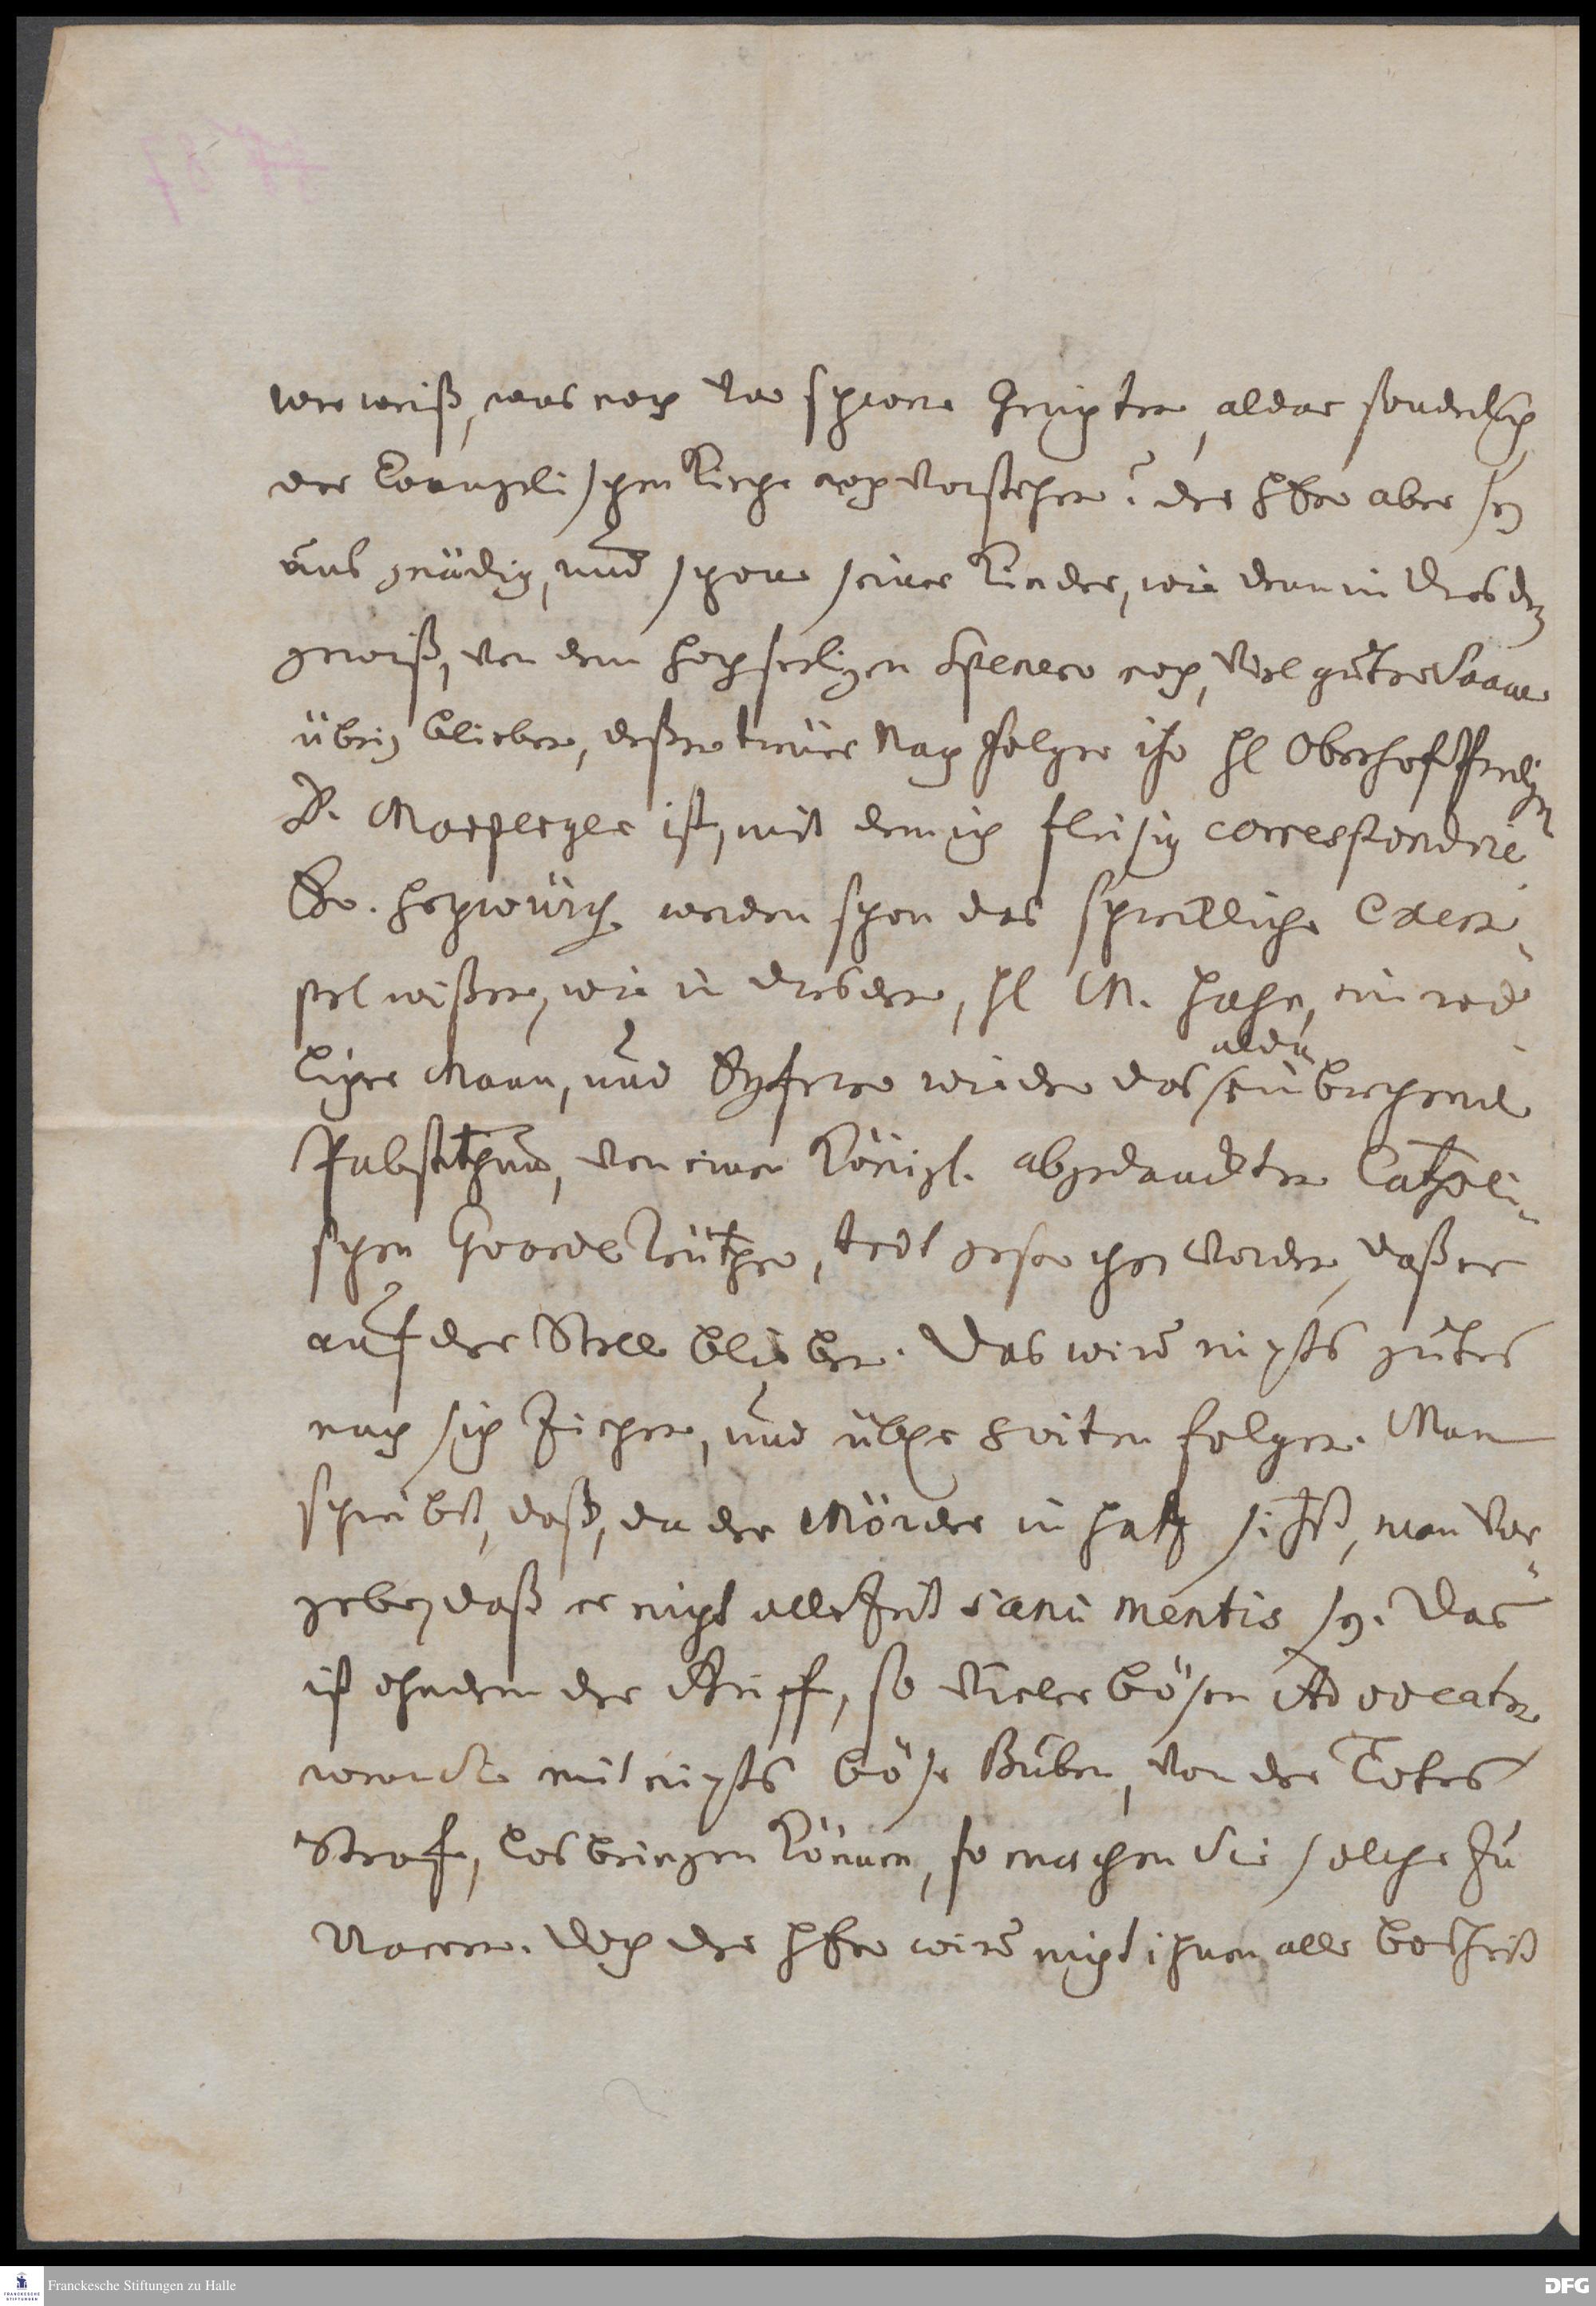 wer weiß, was noch vor schwere Gerichter, aldar sonderlich
der Evangelischen Kirche noch vorstehen? der Herr aber sey
uns gnädig, und schone seiner Kinder, wie dann in Dresden
gewiß, von dem hochseeligen Spenero noch, viel guter Saame
übrig blieben, deßen treuer Nachfolger itzo Hl Oberhoffpredig
D. Marperger ist, mit dem ich fleisig correspondire
Ew. Hochwürd. werden schon das schreckliche Exem-
pel wißen, wie in Dresden, Hl M. Hahn, ein red
licher Mann, und Eyferer wieder das alda
einbrechende
Pabstthum, von einem Königl. abgedanckten Catholi-
schen Guarde Reuther, todt gestochen worden, daß er
auf der Stell blieben. Das wird nichts gutes
nach sich ziehen, und üble suiten folgen. Man
schreibt, daß, da der Mörder in Hafft sitzt, man vor-
geb, daß er nicht alle Zeit sani mentis sey. Das
ist ohndem der Griff, so vieler bösen Advocaten
wenn Sie mit nichts böse Buben, von der Todes
Straf, losbringen können, so machen Sie solche zu
Narren. Doch der Herr wird nicht ihnen alle Boßheit
Franckesche Stiftungen zu Halle
DFG